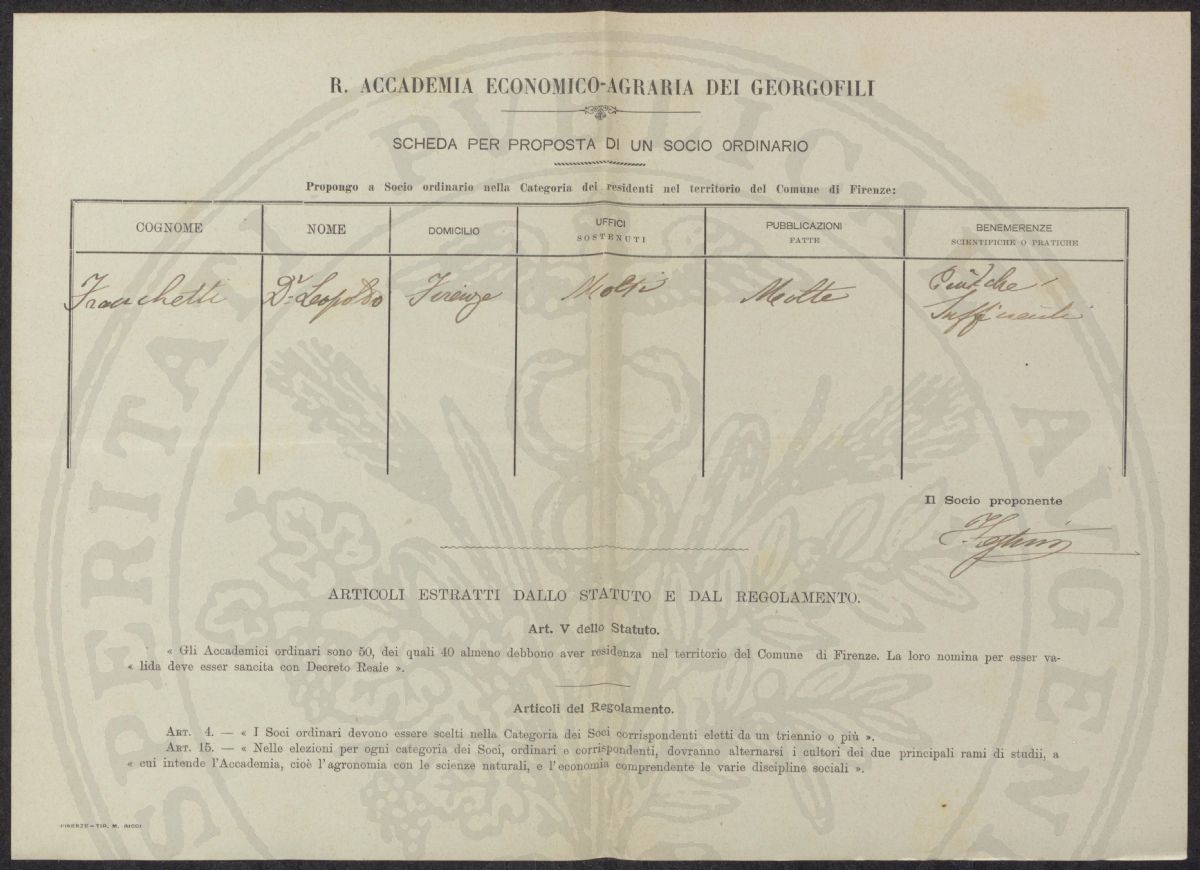 R. ACCADEMIA ECONOMICO-AGRARIA DEI GEORGOFILI
SCHEDA PER PROPOSTA DI UN SOCIO ORDINARIO
Propongo a Socio ordinario nella Categoria dei residenti nel territorio del Comune di Firenze:
COGNOME NOME DOMICILIO UFFICI SOSTENUTI PUBBLICAZIONI FATTE BENEMERENZE SCIENTIFICHE O PRATICHE
Franchetti Dr. Leopoldo Firenze Molti Molte Più che
Sufficienti
Il Socio proponente
ARTICOLI ESTRATTI DALLO STATUTO E DAL REGOLAMENTO.
Art. V dello Statuto.
« Gli Accademici ordinari sono 50, dei quali 40 almeno debbono aver residenza nel territorio del Comune di Firenze. La loro nomina per esser va-
« lida deve esser sancita con Decreto Reale ».
Articoli del Regolamento.
ART. 4. — « I Soci ordinari devono essere scelti nella Categoria dei Soci corrispondenti eletti da un triennio o più ».
ART. 15. — « Nelle elezioni per ogni categoria dei Soci, ordinari e corrispondenti, dovranno alternarsi i cultori dei due principali rami di studii, a
« cui intende l'Accademia, cioè l'agronomia con le scienze naturali, e l'economia comprendente le varie discipline sociali ».
FIRENZE—TIP. M. RICCI
PROSPERITATI PUBLICAE AUGENDAE